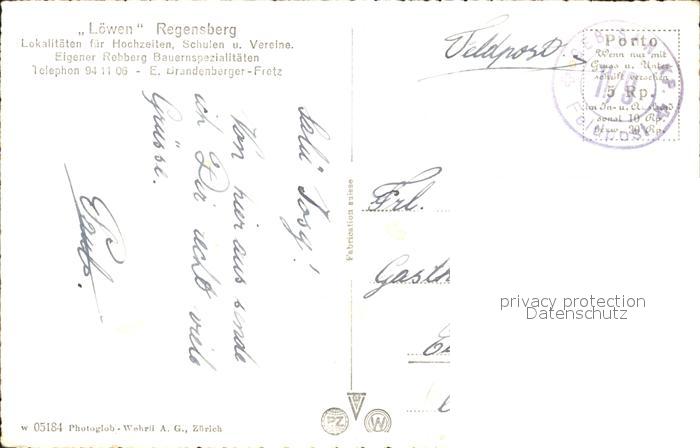 „Löwen" Regensberg
Lokalitäten für Hochzeiten, Schulen u. Vereine.
Eigener Rebberg Bauernspezialitäten
Telephon 94 11 06 - E. Brandenberger-Fretz
Feldpost.
Porto
Wenn nur mit
Gruss u. Unter-
schrift versehen
5 Rp.
im In- u. Ausland
sonst 10 Rp.
bezw. 20 Rp.
Feldpost
Salü Josy!
Von hier aus sende
ich Dir recht viele
Grüsse.
Fabrication suisse
Frl.
privacy protection
Datenschutz
PZ
W
w 05184 Photoglob-Wehrli A. G., Zürich